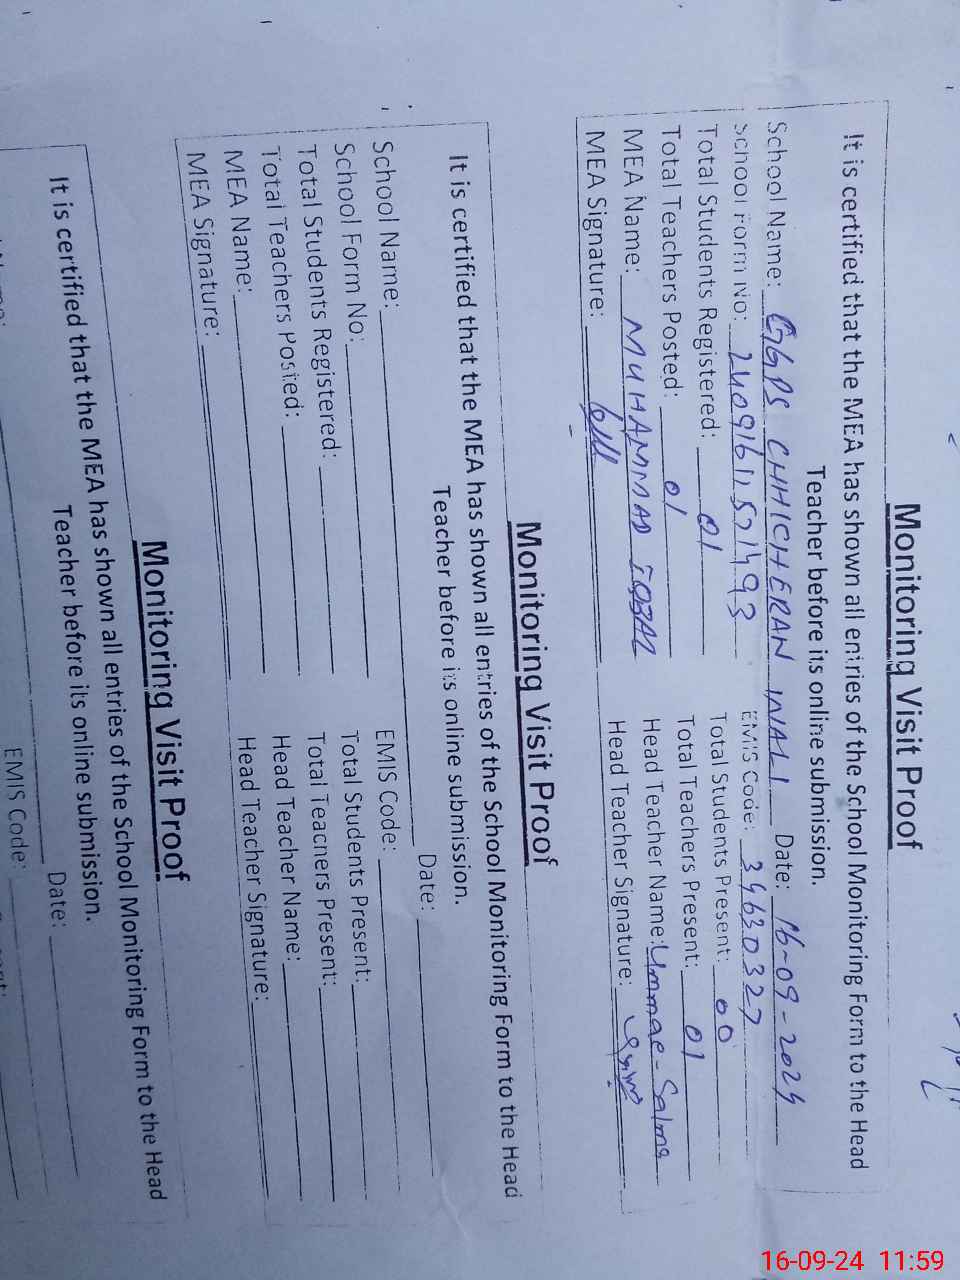 Monitoring Visit Proof
It is certified that the MEA has shown all entries of the School Monitoring Form to the Head
Teacher before its online submission.
School Name: GGPS CHHICHERAN WALI Date: 16-09-2024
School Form No: EMIS Code: 39630327
Total Students Registered: 01 Total Students Present: 00
Total Teachers Posted: 01 Total Teachers Present: 01
MEA Name: MUHAMMAD IQBAL Head Teacher Name: Ummae-Salma
MEA Signature: Head Teacher Signature:
Monitoring Visit Proof
It is certified that the MEA has shown all entries of the School Monitoring Form to the Head
Teacher before its online submission.
School Name: Date:
School Form No: EMIS Code:
Total Students Registered: Total Students Present:
Total Teachers Posted: Total Teachers Present:
MEA Name: Head Teacher Name:
MEA Signature: Head Teacher Signature:
Monitoring Visit Proof
It is certified that the MEA has shown all entries of the School Monitoring Form to the Head
Teacher before its online submission.
Date:
EMIS Code:
16-09-24 11:59